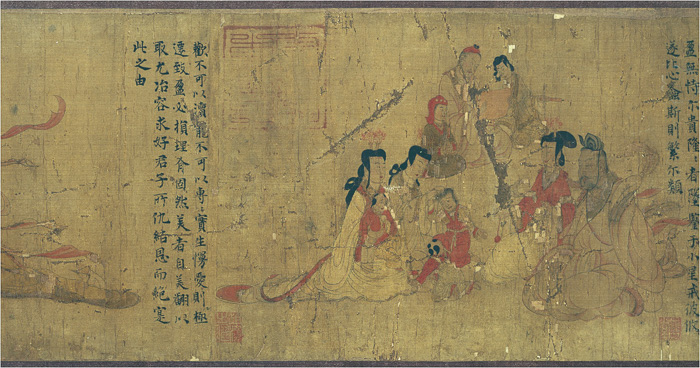 盈無恃尔貴隆〻者墜鑒于小星戒彼攸
遂比心螽斯則繁尔類
歡不可以瀆寵不可以專〻實生慢愛則極
遷致盈必損理有固然美者自美翩以
取尤冶容求好君子所仇結恩而絶寔
此之由